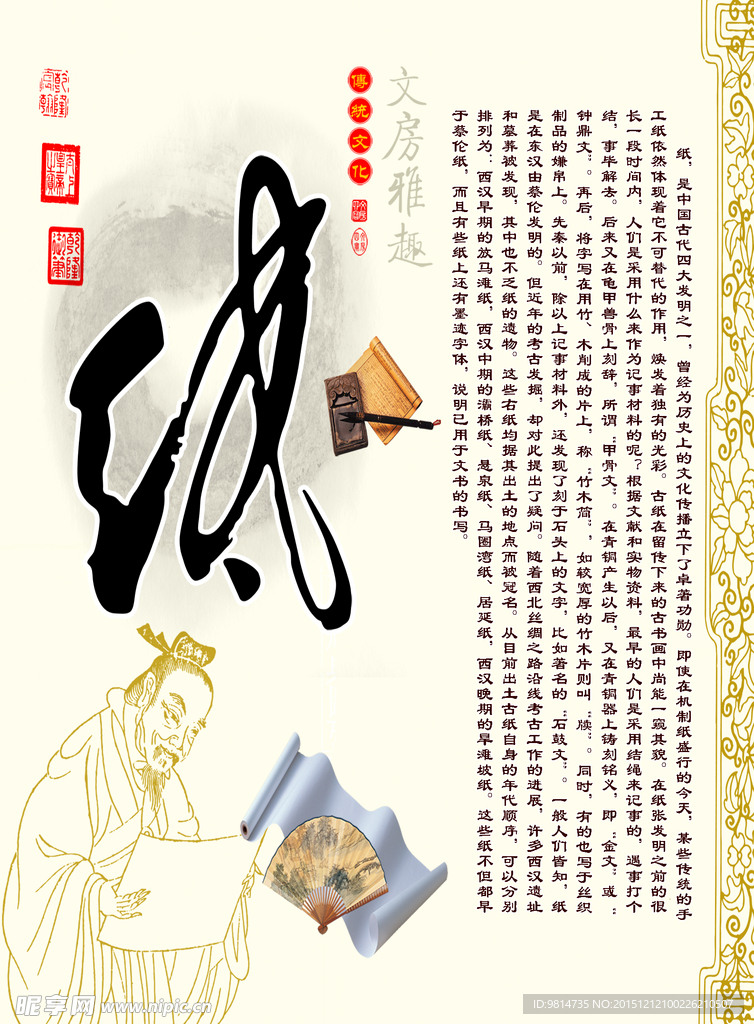 纸，是中国古代四大发明之一，曾经为历史上的文化传播立下了卓著功勋。即使在机制纸盛行的今天，某些传统的手
工纸依然体现着它不可替代的作用，焕发着独有的光彩。古纸在留传下来的古书画中尚能一窥其貌。在纸张发明之前的很
长一段时间内，人们是采用什么来作为记事材料的呢？根据文献和实物资料，最早的人们是采用结绳来记事的，遇事打个
结，事毕解去。后来又在龟甲兽骨上刻辞，所谓“甲骨文”。在青铜产生以后，又在青铜器上铸刻铭义，即“金文”或“
钟鼎文”。再后，将字写在用竹、木削成的片上，称“竹木简”，如较宽厚的竹木片则叫“牍”。同时，有的也写于丝织
制品的缣帛上。先秦以前，除以上记事材料外，还发现了刻于石头上的文字，比如著名的“石鼓文”。一般人们皆知，纸
是在东汉由蔡伦发明的。但近年的考古发掘，却对此提出了疑问。随着西北丝绸之路沿线考古工作的进展，许多西汉遗址
和墓葬被发现，其中也不乏纸的遗物。这些右纸均据其出土的地点而被冠名。从目前出土古纸自身的年代顺序，可以分别
排列为：西汉早期的放马滩纸，西汉中期的灞桥纸、悬泉纸、马圈湾纸、居延纸，西汉晚期的旱滩坡纸。这些纸不但都早
于蔡伦纸，而且有些纸上还有墨迹字体，说明已用于文书的书写。
文房雅趣
傳統文化
纸
昵享网 www.nipic.cn
ID:9814735 NO:20151212100226210507